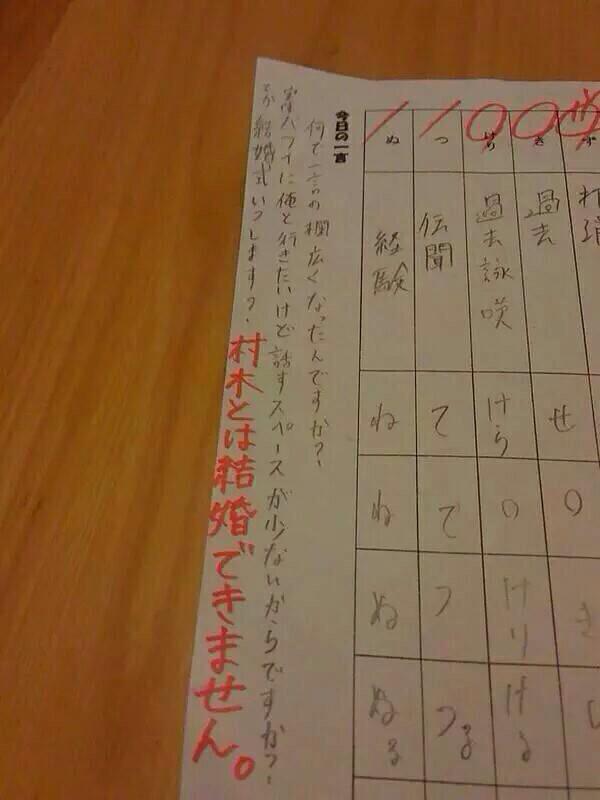 ず 打消
き 過去 せ ○ き し
けり 過去詠嘆 けら ○ けり ける
つ 伝聞 て て つ つる
ぬ 経験 ね ね ぬ ぬる
今日の一言
何で一言の欄広くなったんですか？
ハワイに俺と行きたいけど話すスペースが少ないからですか？
てか結婚式いつします？
村木とは結婚できません。